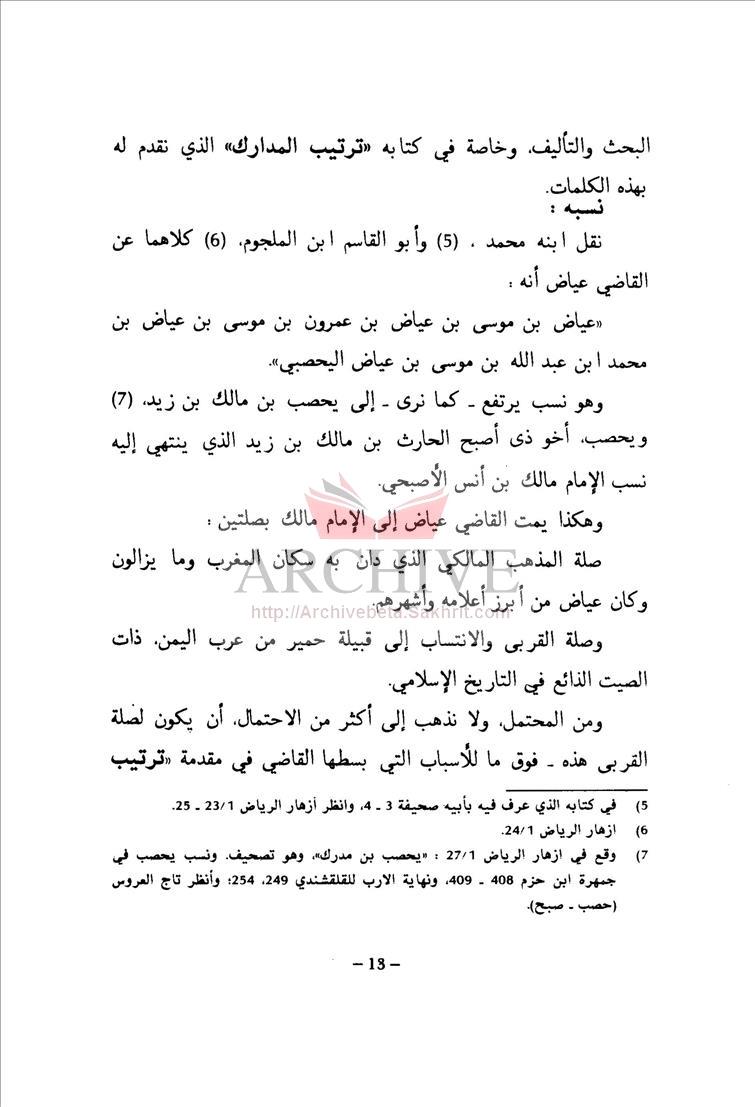 البحث والتأليف، وخاصة في كتابه «ترتيب المدارك» الذي نقدم له
بهذه الكلمات.
نسبه :
نقل ابنه محمد ، (5) وأبو القاسم ابن الملجوم، (6) كلاهما عن
القاضي عياض أنه :
«عياض بن موسى بن عياض بن عمرون بن موسى بن عياض بن
محمد ابن عبد الله بن موسى بن عياض اليحصبي».
وهو نسب يرتفع ـ كما نرى ـ إلى يحصب بن مالك بن زيد، (7)
ويحصب، أخو ذى أصبح الحارث بن مالك بن زيد الذي ينتهي إليه
نسب الإمام مالك بن أنس الأصبحي.
وهكذا يمت القاضي عياض إلى الإمام مالك بصلتين :
صلة المذهب المالكي الذي دان به سكان المغرب وما يزالون
ARCHIVE
وكان عياض من أبرز أعلامه وأشهرهم.
http://Archivebeta.Sakhrit.com
وصلة القربى والانتساب إلى قبيلة حمير من عرب اليمن، ذات
الصيت الذائع في التاريخ الإسلامي.
ومن المحتمل، ولا نذهب إلى أكثر من الاحتمال، أن يكون لصلة
القربى هذه ـ فوق ما للأسباب التي بسطها القاضي في مقدمة «ترتيب
5) في كتابه الذي عرف فيه بأبيه صحيفة 3 ـ 4، وانظر أزهار الرياض 23/1 ـ 25.
6) ازهار الرياض 24/1.
7) وقع في ازهار الرياض 27/1 : «يحصب بن مدرك»، وهو تصحيف. ونسب يحصب في
جمهرة ابن حزم 408 ـ 409، ونهاية الارب للقلقشندي 249، 254؛ وأنظر تاج العروس
(حصب ـ صبح).
– 13 –